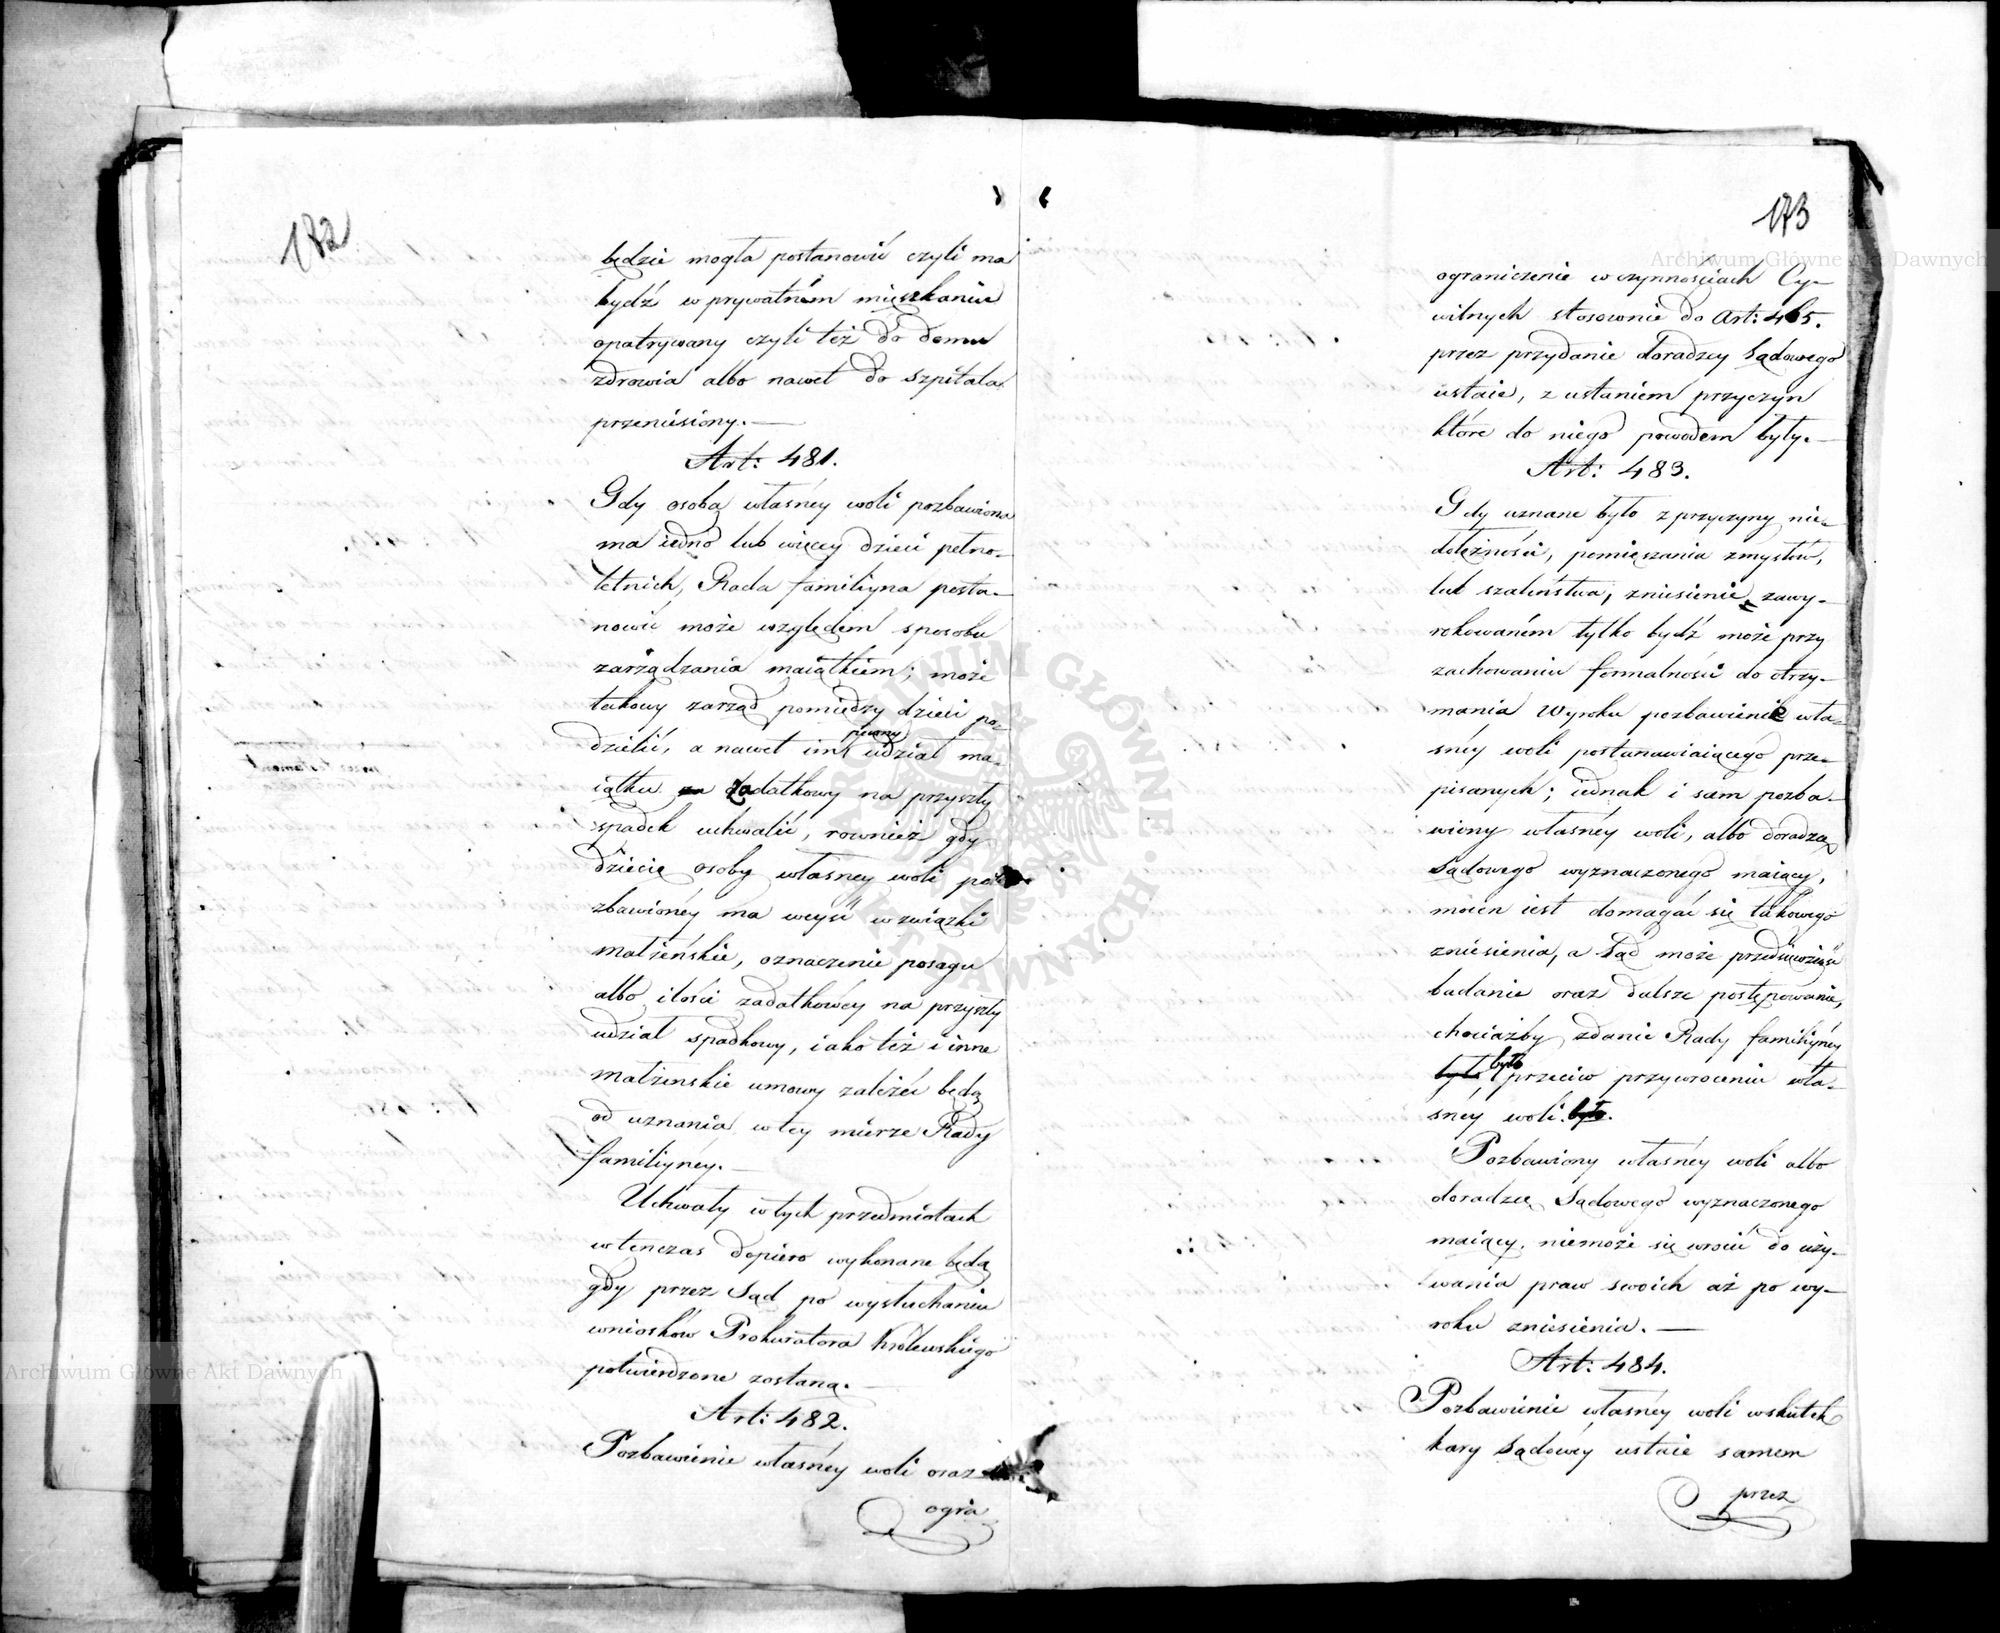 172
będzie mogła postanowić czyli ma
bydź w prywatném mięszkaniu
opatrywany czyli też do domu
zdrowia albo nawet do szpitala
przeniesiony.—
Art: 481.
Gdy osoba własnéy woli pozbawiona
ma iedno lub więcéy dzieci pełno-
letnich, Rada familiyna posta-
nowić może względem sposobu
zarządzania maiątkiem; może
takowy zarząd pomiędzy dzieci po-
dzielić, a nawet im pewny udział ma-
iątku na zadatkowy na przyszły
spadek uchwalić, rownież gdy
dziecię osoby własney woli po
zbawionéy ma weyść w związki
małżeńskie, oznaczenie posagu
albo ilości zadatkowéy na przyszły
udział spadkowy, iako też i inne
małżenskie umowy zależéć będą
od uznania w téy mierze Rady
familiynéy.—
Uchwały w tych przedmiotach
wtenczas dopiero wykonane będą
gdy przez Sąd po wysłuchaniu
wniosków Prokuratora Królewskiego
potwierdzone zostaną.—
Art: 482.
Pozbawienie własnéy woli oraz
ogra
173
ograniczenie w czynnościach Cy-
wilnych stosownie do Art: 465.
przez przydanie doradzcy Sądowego
ustaie, z ustaniem przyczyn
które do niego powodem były.—
Art: 483.
Gdy uznane było z przyczyny nie-
dołężności, pomięszania zmysłów,
lub szaleństwa, zniesienie zawy-
rokowaném tylko bydź może przy
zachowaniu formalności do otrzy-
mania Wyroku pozbawienie wła-
snéy woli postanawiaiącego prze-
pisanych; iednak i sam pozba-
wiony własnéy woli, albo doradzcę
Sądowego wyznaczonego maiący,
mocen iest domagać się takowego
zniesienia, a Sąd może przedsięwziąść
badanie oraz dalsze postępowanie,
chociażby zdanie Rady familiynéy
było było przeciw przywroceniu wła-
snéy woli. było.
Pozbawiony własnéy woli albo
doradzcę Sądowego wyznaczonego
maiący, niemoże się wrócić do uży-
wania praw swoich aż po wy-
roku zniesienia.—
Art: 484.
Pozbawienie własnéy woli wskutek
kary Sądowéy ustaie samem
przez
Archiwum Główne Akt Dawnych
Archiwum Główne Akt Dawnych
ARCHIWUM GŁÓWNE AKT DAWNYCH